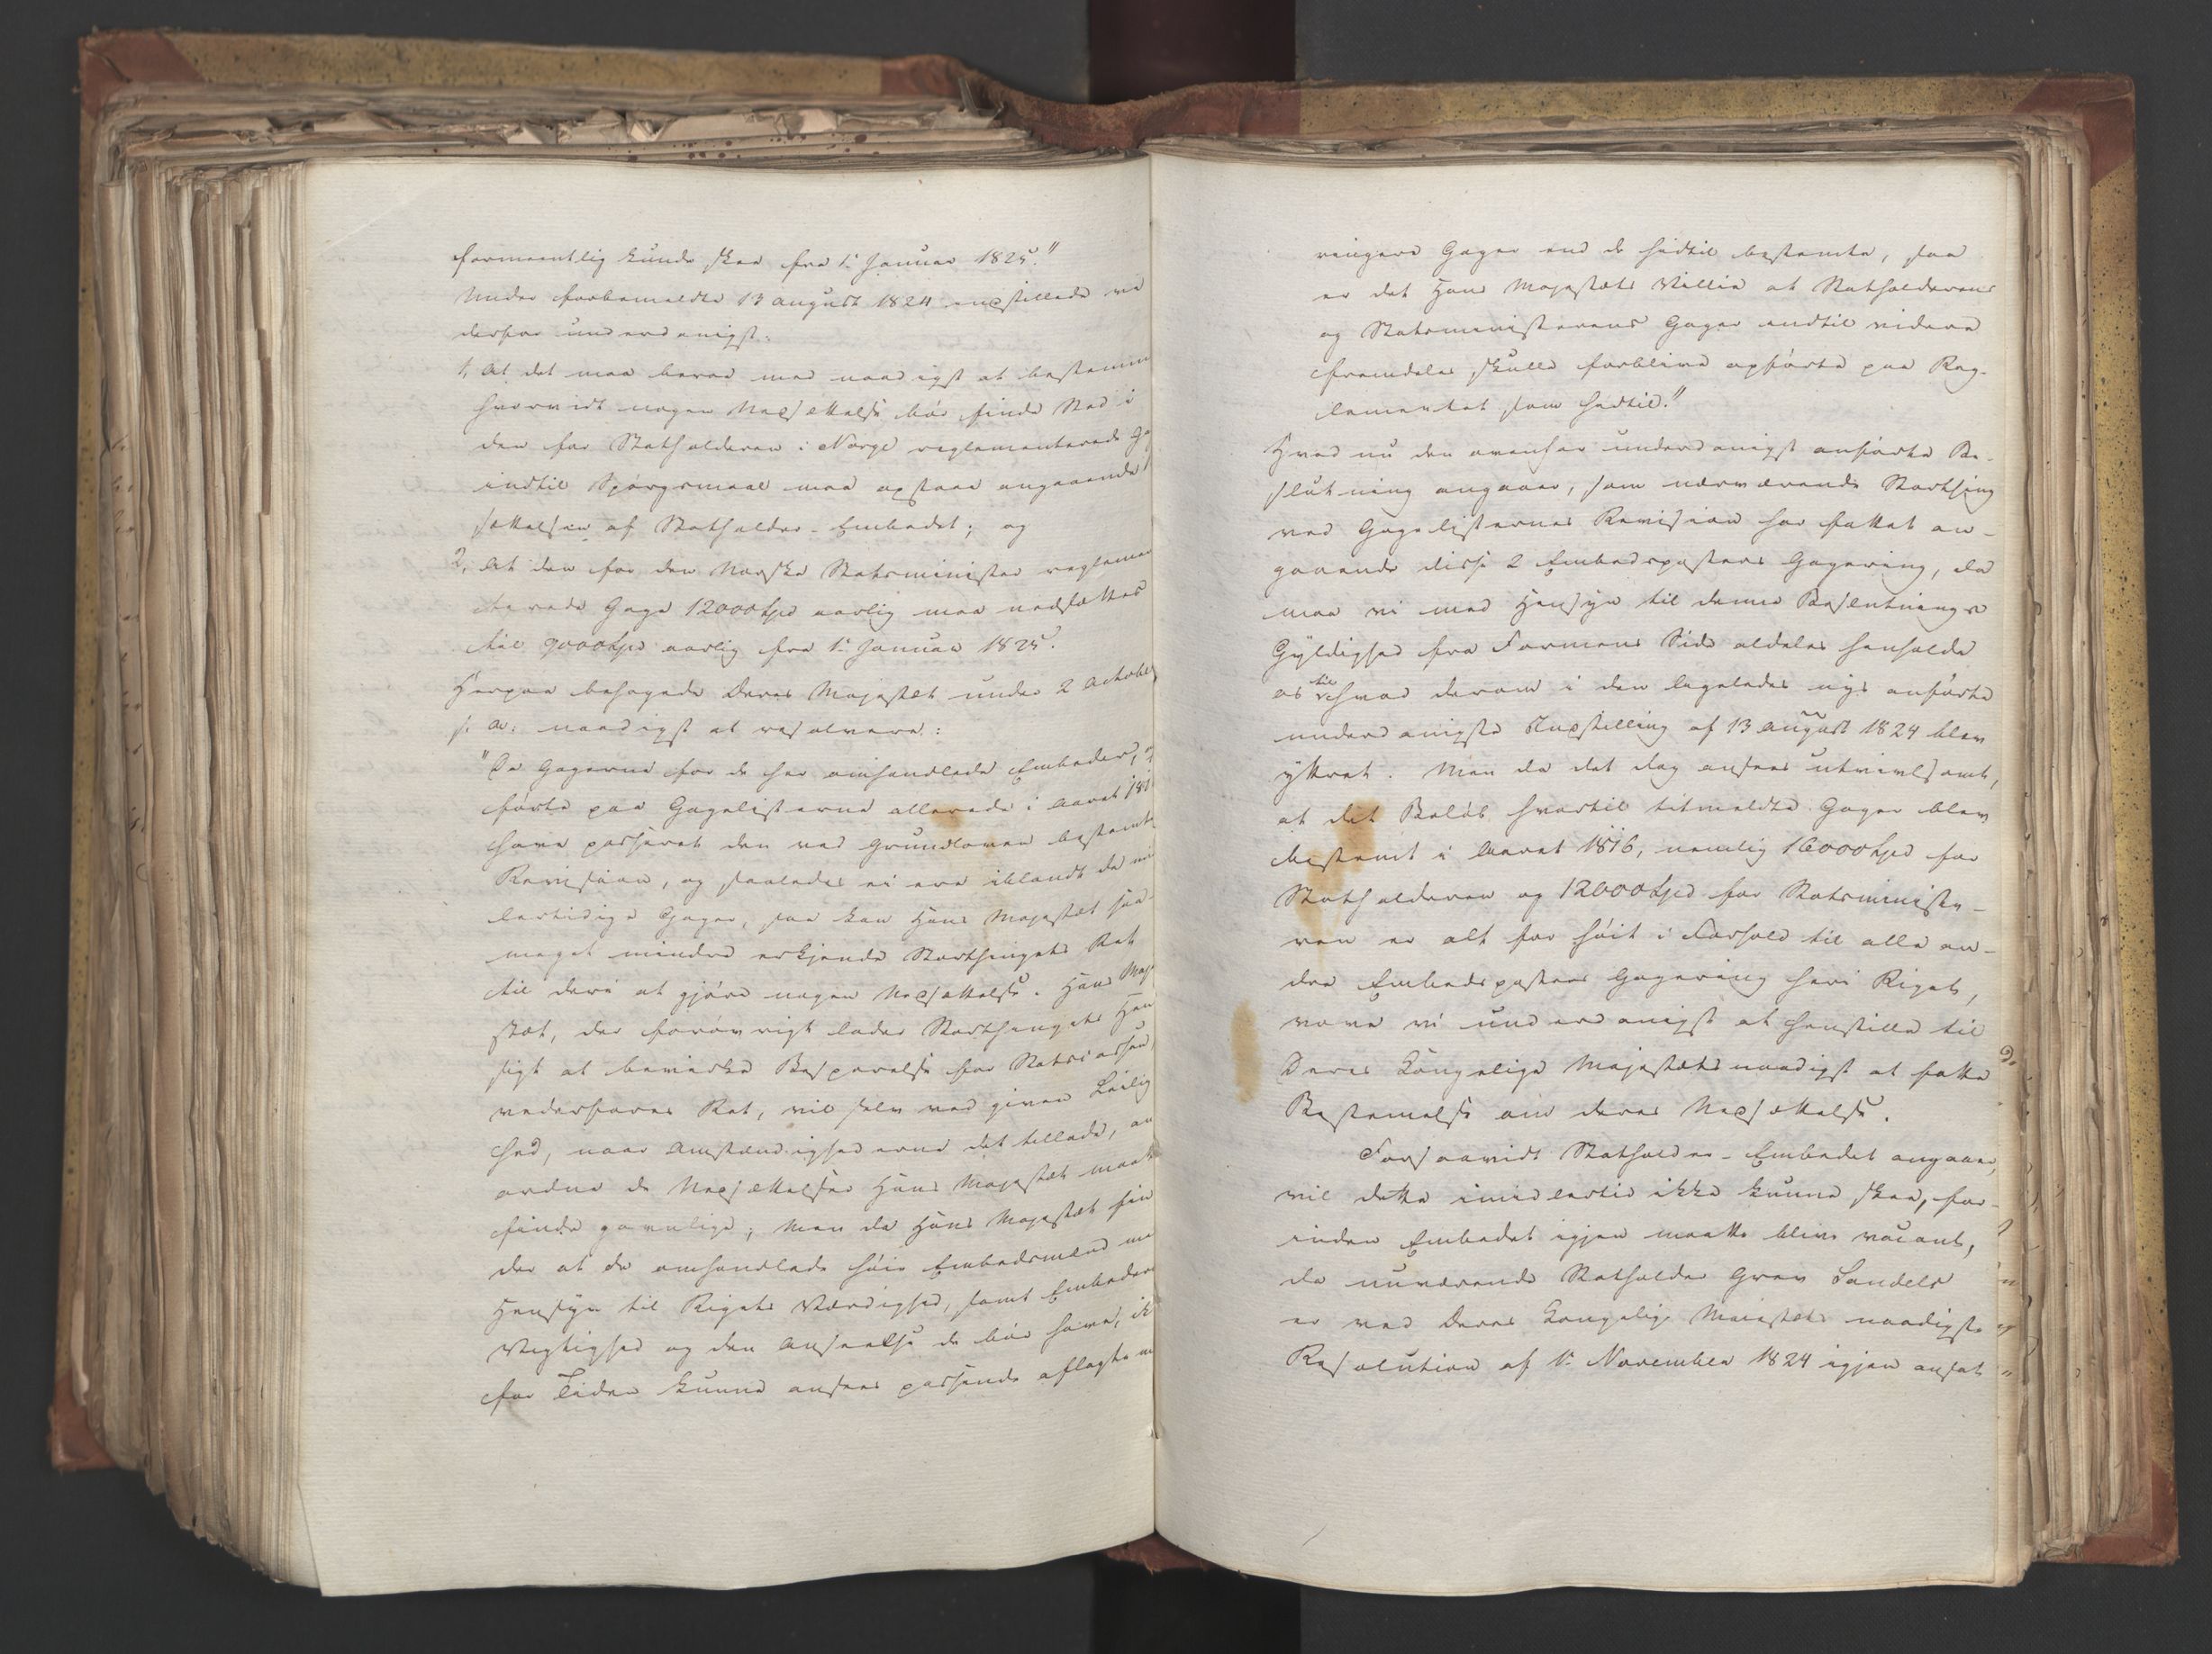 formeentlig kunde skee fra 1ste Januar 1825."
Under forbemeldte 13 August 1824 inpstillede vi
derfor underdanigst:
1, At det maa behage med naadigst at bestemme
hvorvidt nogen Nedsættelse bør finde Sted i
den for Statholderen i Norge reglementerede
indtil Spørgsmaal maa opstaae angaaende
sættelsen af Statholder-Embedet; og
2, At den for den Norske Statsminister reglemen
terede Gage 12000 Spd aarlig maa nedsættes
til 9000 Spd aarlig fra 1ste Januar 1825.
Herpaa behagede Deres Majestæt under 2 October
s. A. naadigst at resolvere:
"Da Gagerne for de her omhandlede Embeder,
førte paa Gagelisterne allerede i Aaret
have passeret den ved Grundloven bestemte
Revision, og saaledes ei ere iblandt de
lertidige Gager, saa kan Hans Majestæt saa
meget mindre erkjende Storthingets Ret
til deri at gjøre nogen Nedsættelse. Hans Maje
stæt, der forøvrigt lader Storthingets Hen
sigt at bevirke Besparelse for Statscassen
vederfares Ret, vil selv ved given Leilig
hed, naar Omstændighederne det tillade, an
ordne de Nedsættelser Hans Majestæt maatte
finde gavnlige; men da Hans Majestæt fin
der at de omhandlede høie Embedsmænd
Hensyn til Rigets Værdighed, samt Embedernes
Vigtighed og den Anseelse de bør have, ik
for Tiden kunne ansees passende aflagte
ringere Gager end de hidtil bestemte, saa
er det Hans Majestæts Villie at Statholderens
og Statsministerens Gager indtil videre
fremdeles skulle forblive opførte paa Reg-
lementet som hidtil."
Hvad nu den ovenfor underdanigst anførte Be-
slutning angaaer, som nærværende Storthing
ved Gagelisternes Revision har fattet an-
gaaende disse 2 Embedsposters Gagering, da
maa vi med Hensyn til denne Beslutnings
Gyldighed fra Formens Side aldeles henholde
os til hvad derom i den ligeledes nys anførte
underdanigste Indstilling af 13 August 1824 blev
yttret. Men da det dog ansees utvivlsomt,
at det Beløb hvortil titmeldte Gager blev
bestemt i Aaret 1816, nemlig 16000 Spd for
Statholderen og 12000 Spd for Statsministe-
ren er alt for høit i Forhold til alle an-
dre Embedsposters Gagering her i Riget,
vove vi underdanigst at henstille til
Deres Kongelige Majestæts naadigst at fatte
Bestemmelse om deres Nedsættelse.
Forsaavidt Statholder-Embedet angaaer,
vil dette imidlertid ikke kunne skee, for-
inden Embedet igjen maatte blive vacant,
da nuværende Statholder Grev Sandels
er ved Deres Kongelige Majestæts naadigste
Resolution af 1ste November 1824 igjen ansat